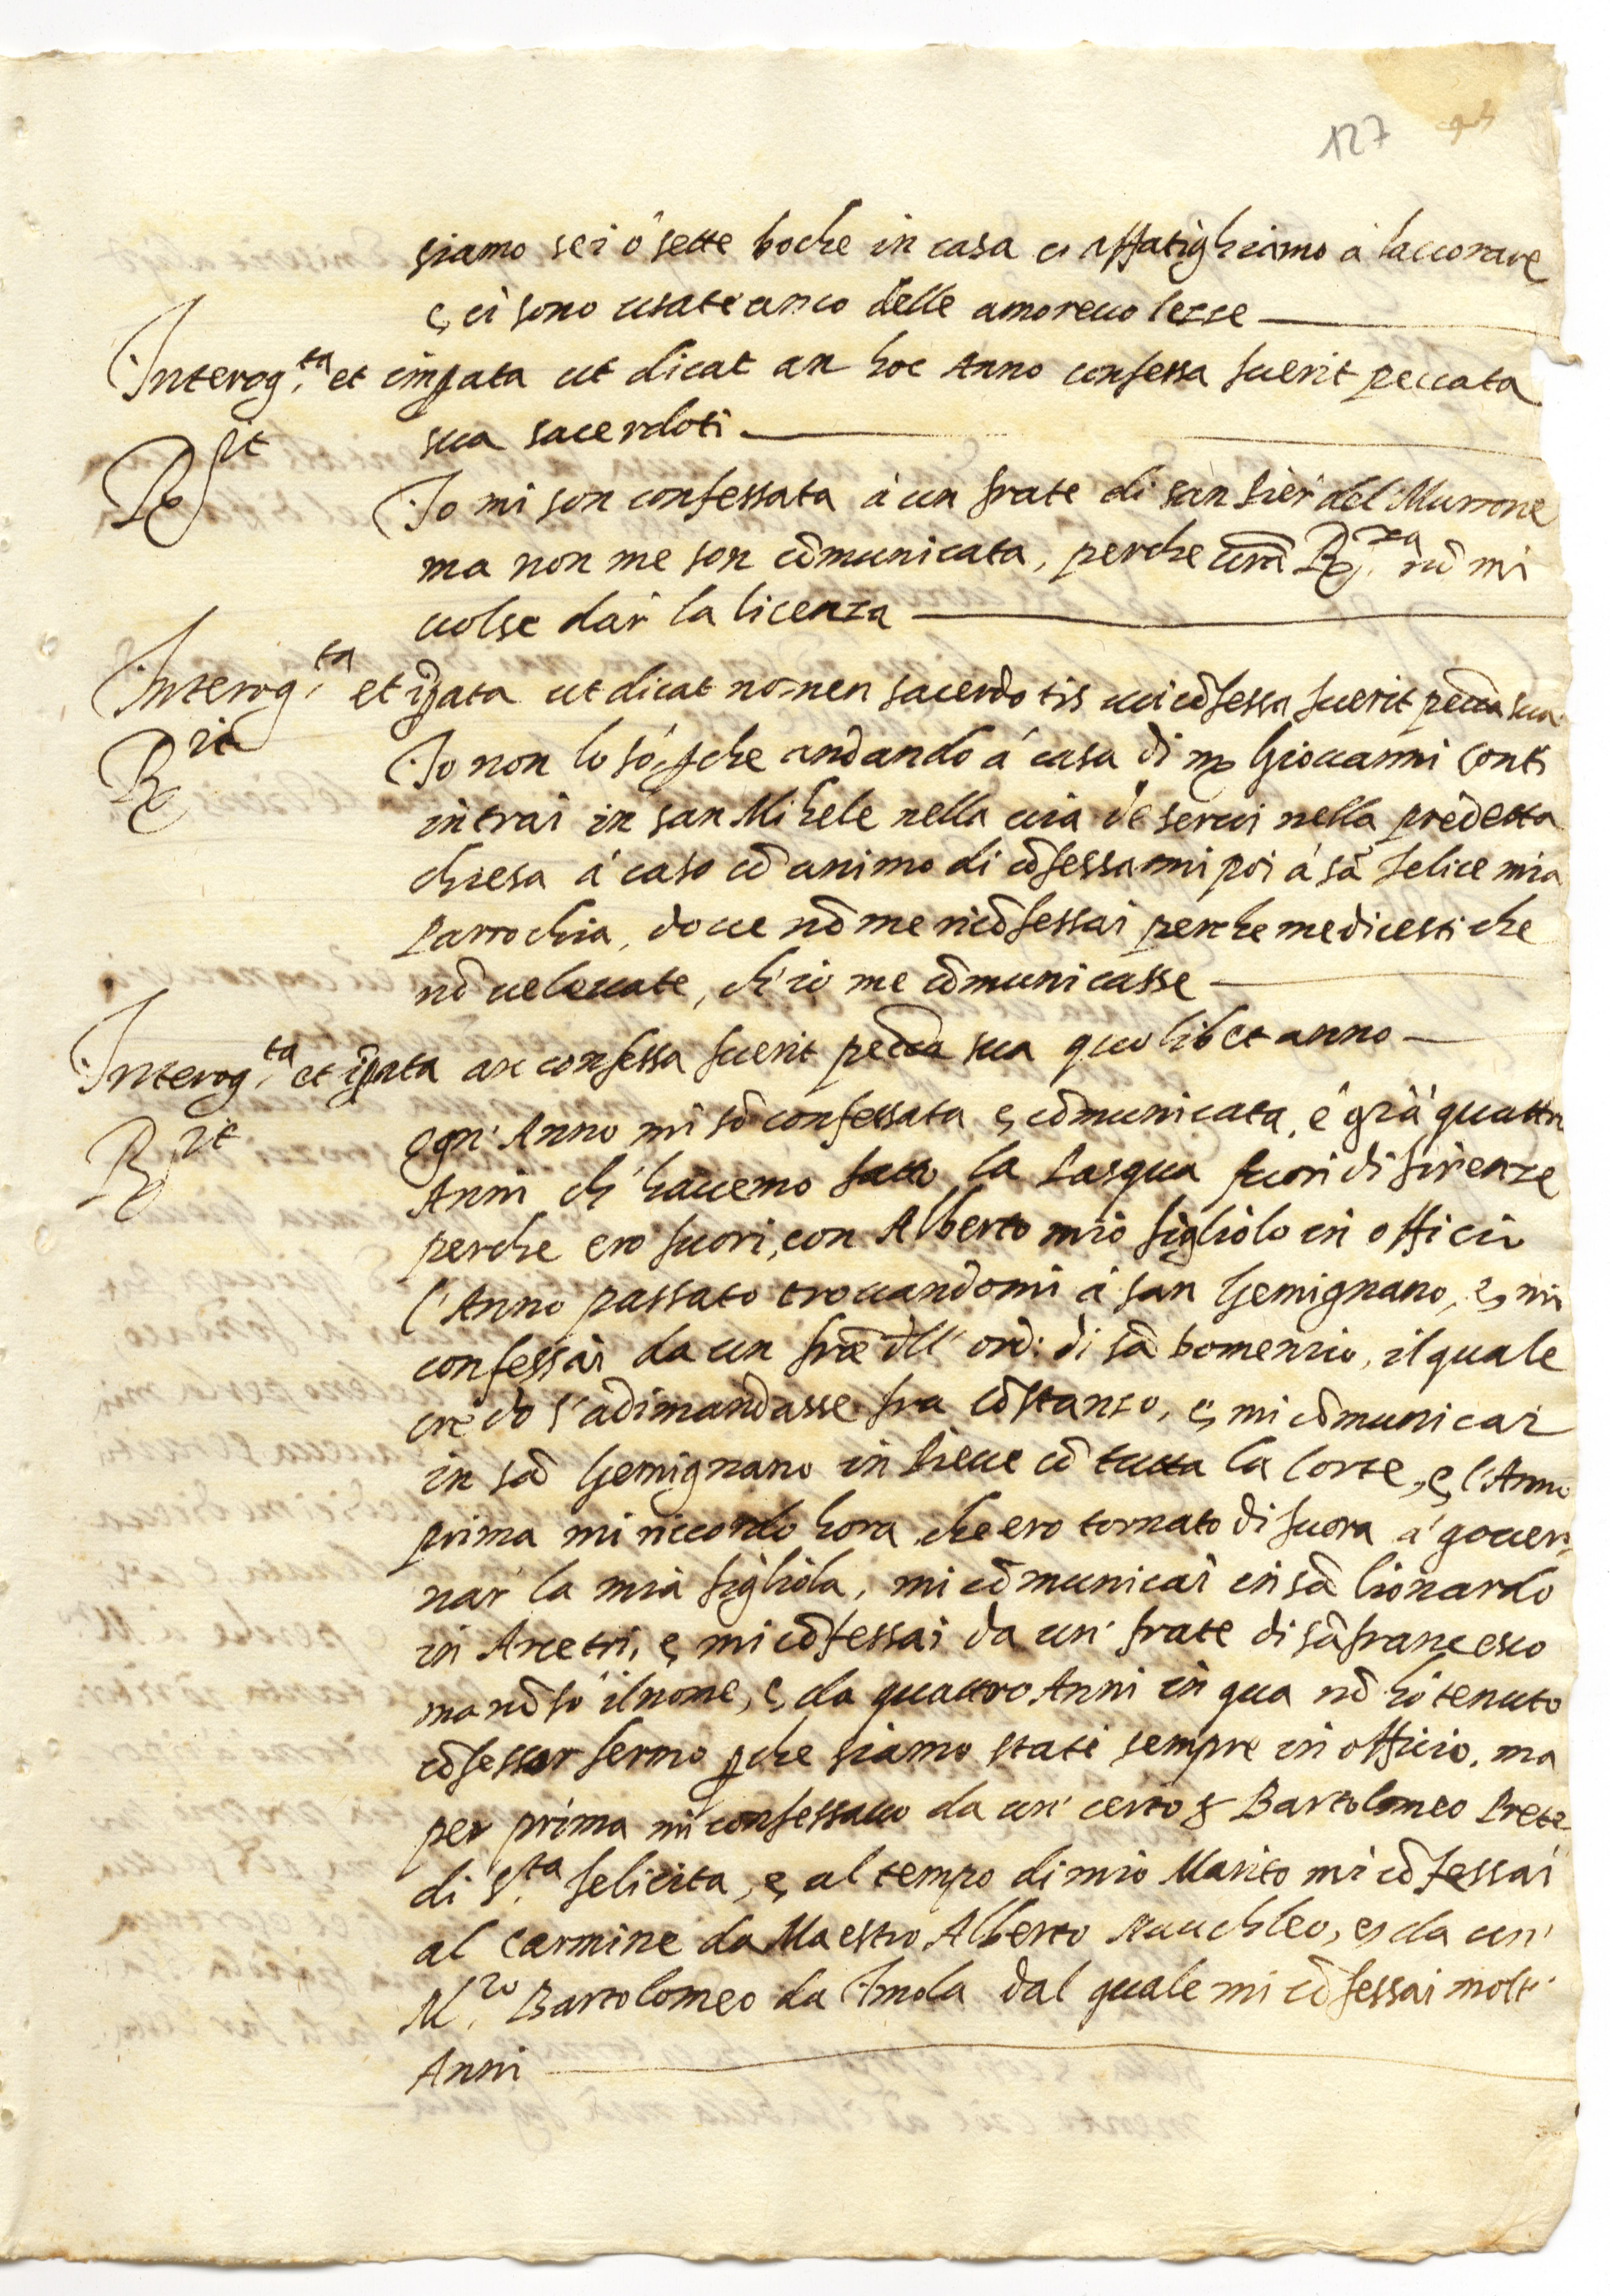 127
siamo sei ò sette boche in casa ci affatighiamo à lauorare
e, ci sono usate anco delle amoreuolezze
Interog.ta et impata ut dicat an hoc Anno confessa fuerit peccata
sua sacerdoti
Rit Io mi son confessata à un frate di san Pier del Murrone
ma non me son cõmunicata, perche vrã R.za nõ mi
uolse dar la licenza
Interog.ta et ipata ut dicat nomen sacerdotis cui cõfessa fuerit peccã sua
Rit Io non lo sò, pche andando à casa di mr Giouanni Conti
intrai in san Mihele nella uia de serui nella predetta
chiesa à caso cõ animo di cõfessarmi poi à sã felice mia
Parrochia, doue nõ me ricõfessai perche me dicesti che
nõ ueleuate, ch'io me cõmunicasse
Interog.ta et ipata an confessa fuerit peccã sua quolibet anno
Rit Ogn' Anno mi sõ confessata e, cõmunicata, è già quattro
Anni ch' hauemo fatto la Pasqua fuori di firenze
perche ero fuori, con Alberto mio figliolo in officio
l'Anno passato trouandomi à san Gemignano, e, mi
confessai da un frãe dll' ord: di sã Domenico, il quale
credo s'adimandasse fra Cõstanzo, e, mi cõmunicai
in sã Gemignano in Pieue cõ tutta la Corte, e, l'Anno
prima mi riccordo hora che ero tornato di fuora à gouer
nar la mia figliola, mi cõmunicai in sã Lionardo
in Arcetri, e, mi cõfessai da un' frate di sã francesco
ma nõ so il nome, e, da quattro Anni in qua nõ hò tenuto
cõfessor fermo pche siamo stati sempre in officio, ma
per prima mi confessauo da un' certo s Bartolomeo Prete
di S.ta felicita, e, al tempo di mio Marito mi cõfessai
al Carmine da Maestro Alberto, e, da un'
M.ro Bartolomeo da Imola dal quale mi cõfessai molt'
Anni